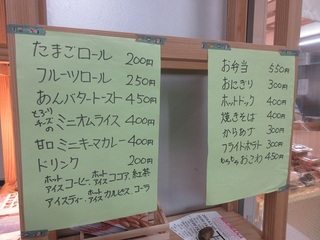 たまごロール 200円
フルーツロール 250円
あんバタートースト 450円
とろ〜りチーズの ミニオムライス 400円
甘口 ミニキーマカレー 400円
ドリンク 200円
ホット アイス コーヒー、ホット アイス ココア、紅茶
アイスティー、ホット アイス カルピス、コーラ
お弁当 550円
おにぎり 300円
ホットドック 400円
焼きそば 400円
からあげ 300円
フライドポテト 300円
もっちもちおこわ 450円